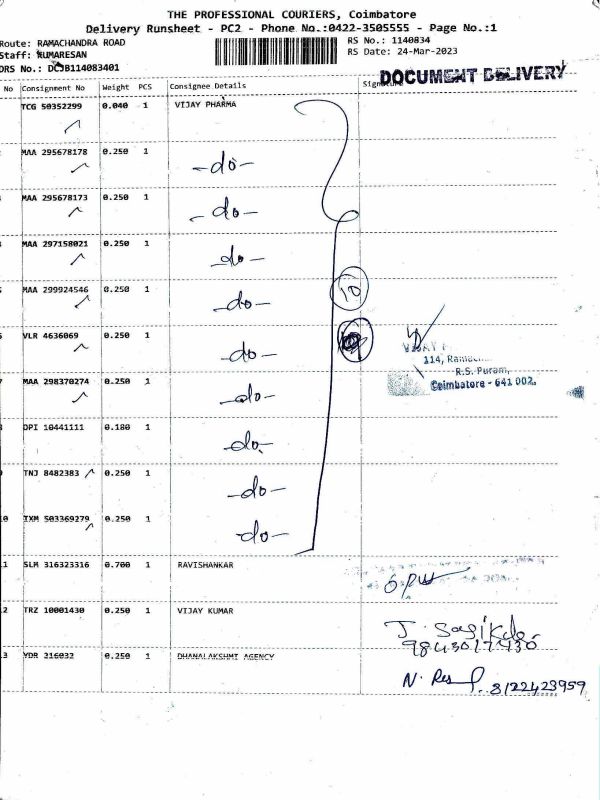 THE PROFESSIONAL COURIERS, Coimbatore
Delivery Runsheet - PC2 - Phone No.:0422-3505555 - Page No.:1
Route: RAMACHANDRA ROAD
RS No.: 1140834
Staff: KUMARESAN
RS Date: 24-Mar-2023
DRS No.: DCJB114083401
DOCUMENT DELIVERY
No Consignment No Weight PCS Consignee Details Signature
TCG 50352299 0.040 1 VIJAY PHARMA
MAA 295678178 0.250 1 -do-
MAA 295678173 0.250 1 -do-
MAA 297158021 0.250 1 -do-
MAA 299924546 0.250 1 -do- 10
VLR 4636069 0.250 1 -do-
114,
R.S. Puram,
MAA 298370274 0.250 1 -do- Coimbatore - 641 002.
DPI 10441111 0.180 1 -do-
TNJ 8482383 0.250 1 -do-
TXM 503369279 0.250 1 -do-
1 SLM 316323316 0.700 1 RAVISHANKAR
2 TRZ 10001430 0.250 1 VIJAY KUMAR
3 YDR 216032 0.250 1 DHANALAKSHMI AGENCY
8122423959